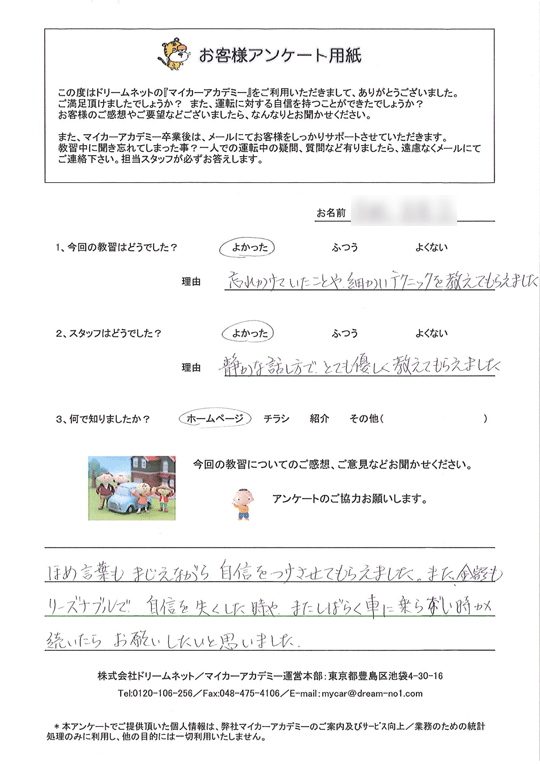 お客様アンケート用紙
この度はドリームネットの『マイカーアカデミー』をご利用いただきまして、ありがとうございました。
ご満足頂けましたでしょうか？ また、運転に対する自信を持つことができたでしょうか？
お客様のご感想やご要望などございましたら、なんなりとお聞かせください。
また、マイカーアカデミー卒業後は、メールにてお客様をしっかりサポートさせていただきます。
教習中に聞き忘れてしまった事？一人での運転中の疑問、質問など有りましたら、遠慮なくメールにて
ご連絡下さい。担当スタッフが必ずお答えします。
お名前
1、今回の教習はどうでした？ よかった ふつう よくない
理由 忘れかけていたことや、細かいテクニックを教えてもらえました
2、スタッフはどうでした？ よかった ふつう よくない
理由 静かな話し方で、とても優しく教えてもらえました
3、何で知りましたか？ ホームページ チラシ 紹介 その他( )
今回の教習についてのご感想、ご意見などお聞かせください。
アンケートのご協力お願いします。
ほめ言葉もまじえながら 自信をつけさせてもらえました。また、金額も
リーズナブルで 自信を失くした時や、またしばらく車に乗らない時が
続いたら お願いしたいと思いました。
株式会社ドリームネット／マイカーアカデミー運営本部：東京都豊島区池袋4-30-16
Tel:0120-106-256／Fax:048-475-4106／E-mail:mycar@dream-no1.com
＊本アンケートでご提供頂いた個人情報は、弊社マイカーアカデミーのご案内及びサービス向上／業務のための統計
処理のみに利用し、他の目的には一切利用いたしません。